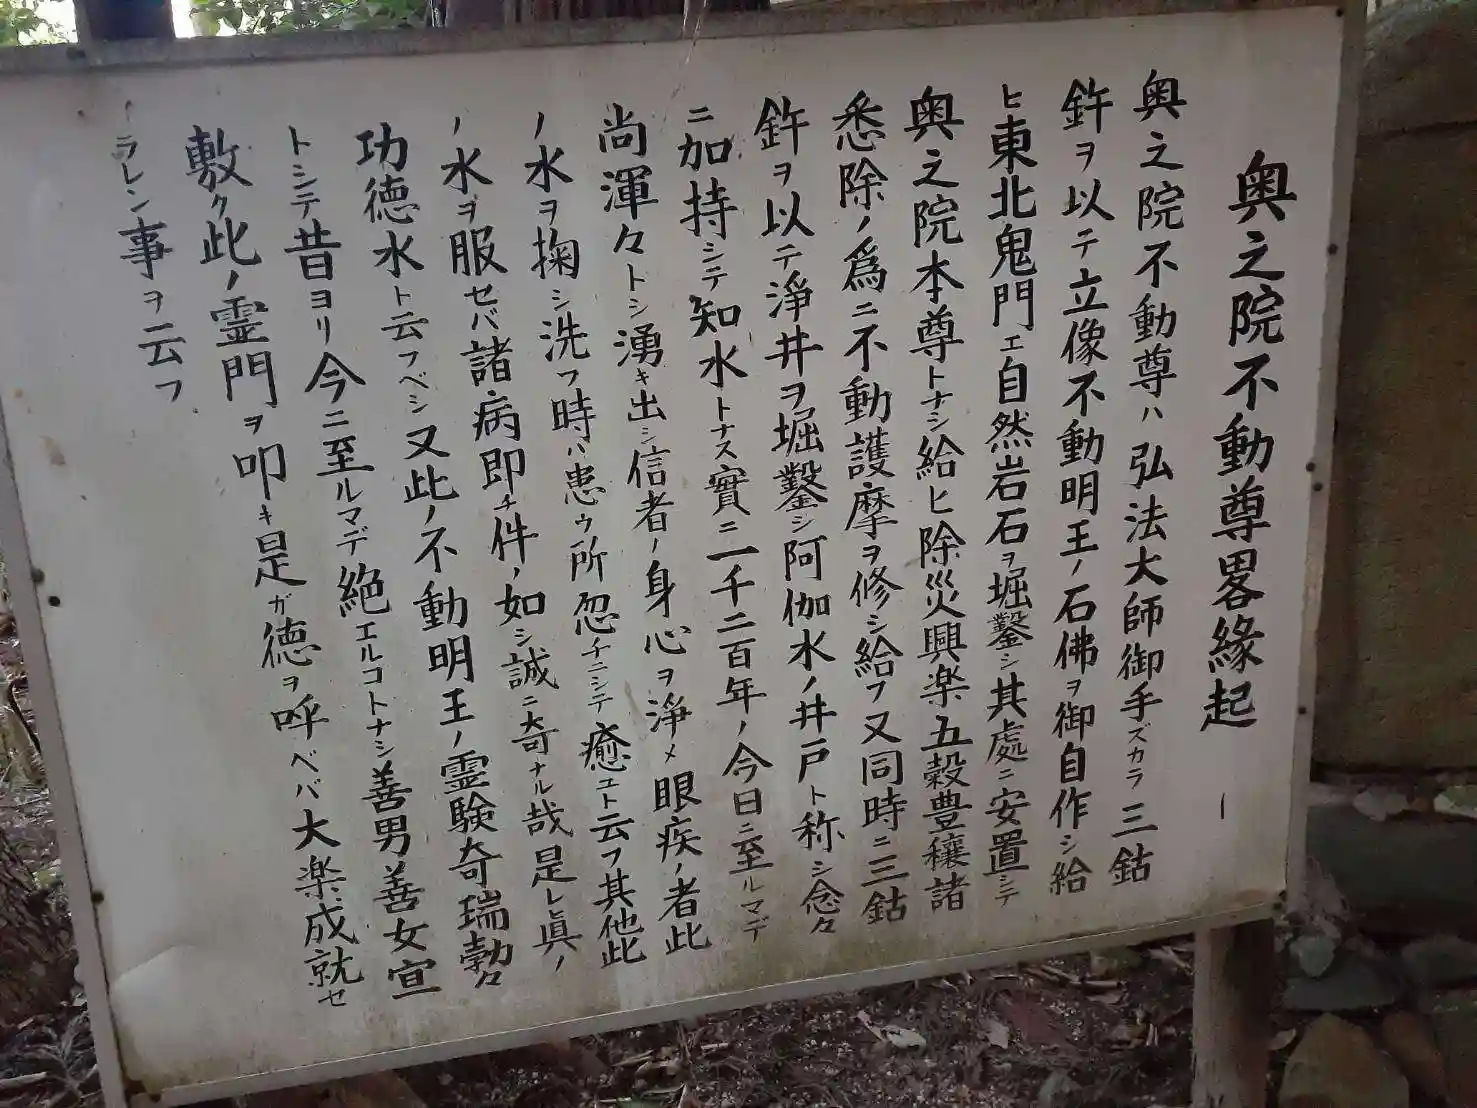 奥之院不動尊畧縁起 ー
奥之院不動尊ハ弘法大師御手ズカラ三鈷
鈼ヲ以テ立像不動明王ノ石佛ヲ御自作シ給
ヒ東北鬼門エ自然岩石ヲ堀鑿シ其處ニ安置シテ
奥之院本尊トナシ給ヒ除災興楽五穀豊穣諸
悉除ノ爲ニ不動護摩ヲ修シ給フ又同時ニ三鈷
鈼ヲ以テ淨井ヲ堀鑿シ阿伽水ノ井戸ト称シ念々
ニ加持シテ知水トナス實ニ一千二百年ノ今日ニ至ルマデ
尚渾々ドシ湧キ出シ信者ノ身心ヲ淨メ眼疾ノ者此
ノ水ヲ掬シ洗フ時ハ患ウ所忽チニシテ癒ユト云フ其他此
ノ水ヲ服セバ諸病即チ件ノ如シ誠ニ奇ナル哉是レ眞ノ
功徳水ト云フベシ又此ノ不動明王ノ霊験奇瑞勃々
トシテ昔ヨリ今ニ至ルマデ絶エルコトナシ善男善女宜
敷ク此ノ霊門ヲ叩キ是ガ徳ヲ呼ベバ大楽成就セ
ラレン事ヲ云フ